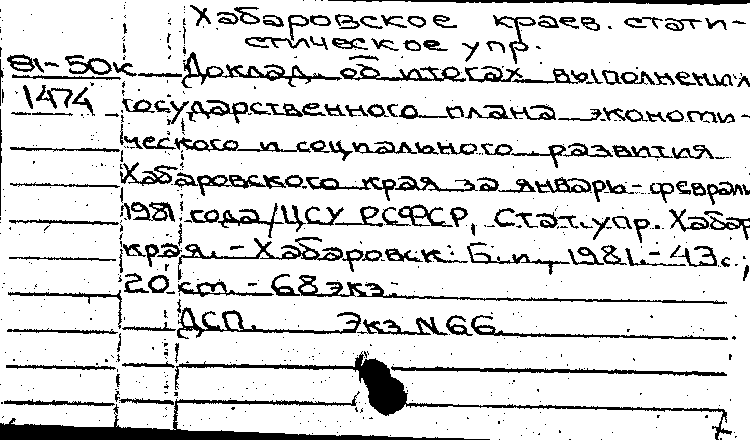 Хабаровское краев. стати-
стическое упр.
81-50к Доклад об итогах выполнения
1474 государственного плана экономи-
ческого и социального развития
Хабаровского края за январь-феврал
1981 года/ЦСУ РСФСР, Стат. упр. Хабар
края. - Хабаровск: Б. и., 1981. - 43 с.;
20 см. - 68 экз.
ДСП. Экз N 66.